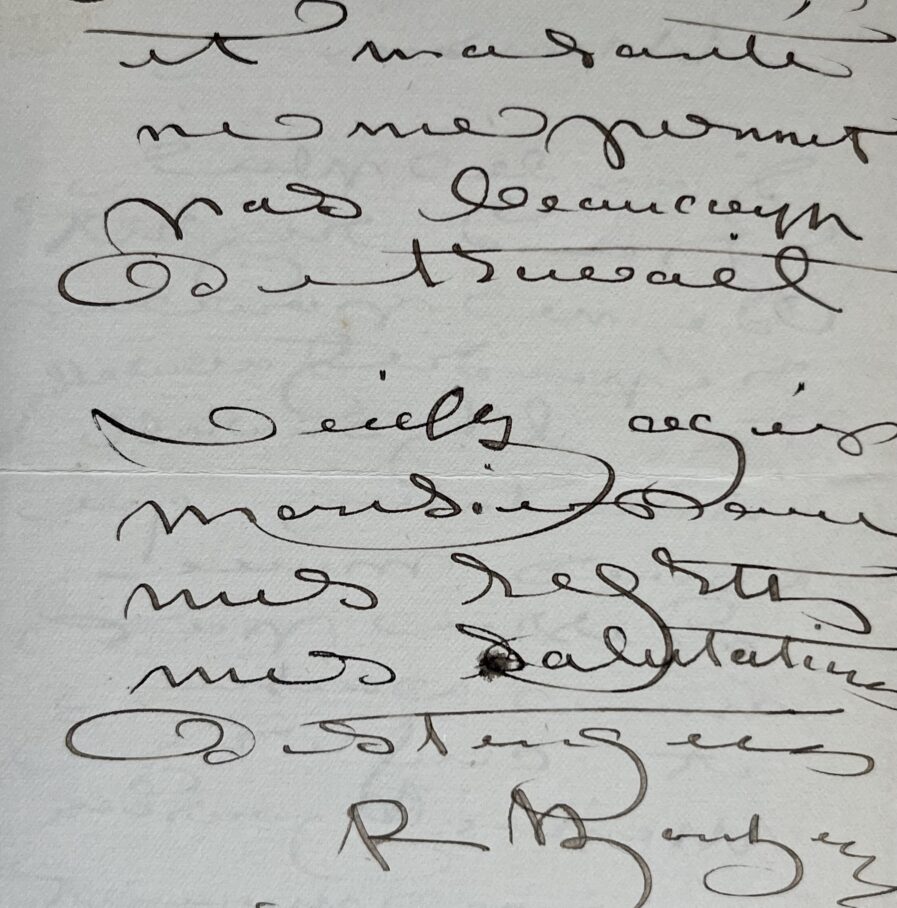 et ma santé
ne me permet
pas beaucoup
de travail
Veuillez agréer
Monsieur avec
mes regrets
mes salutations
distinguées
R